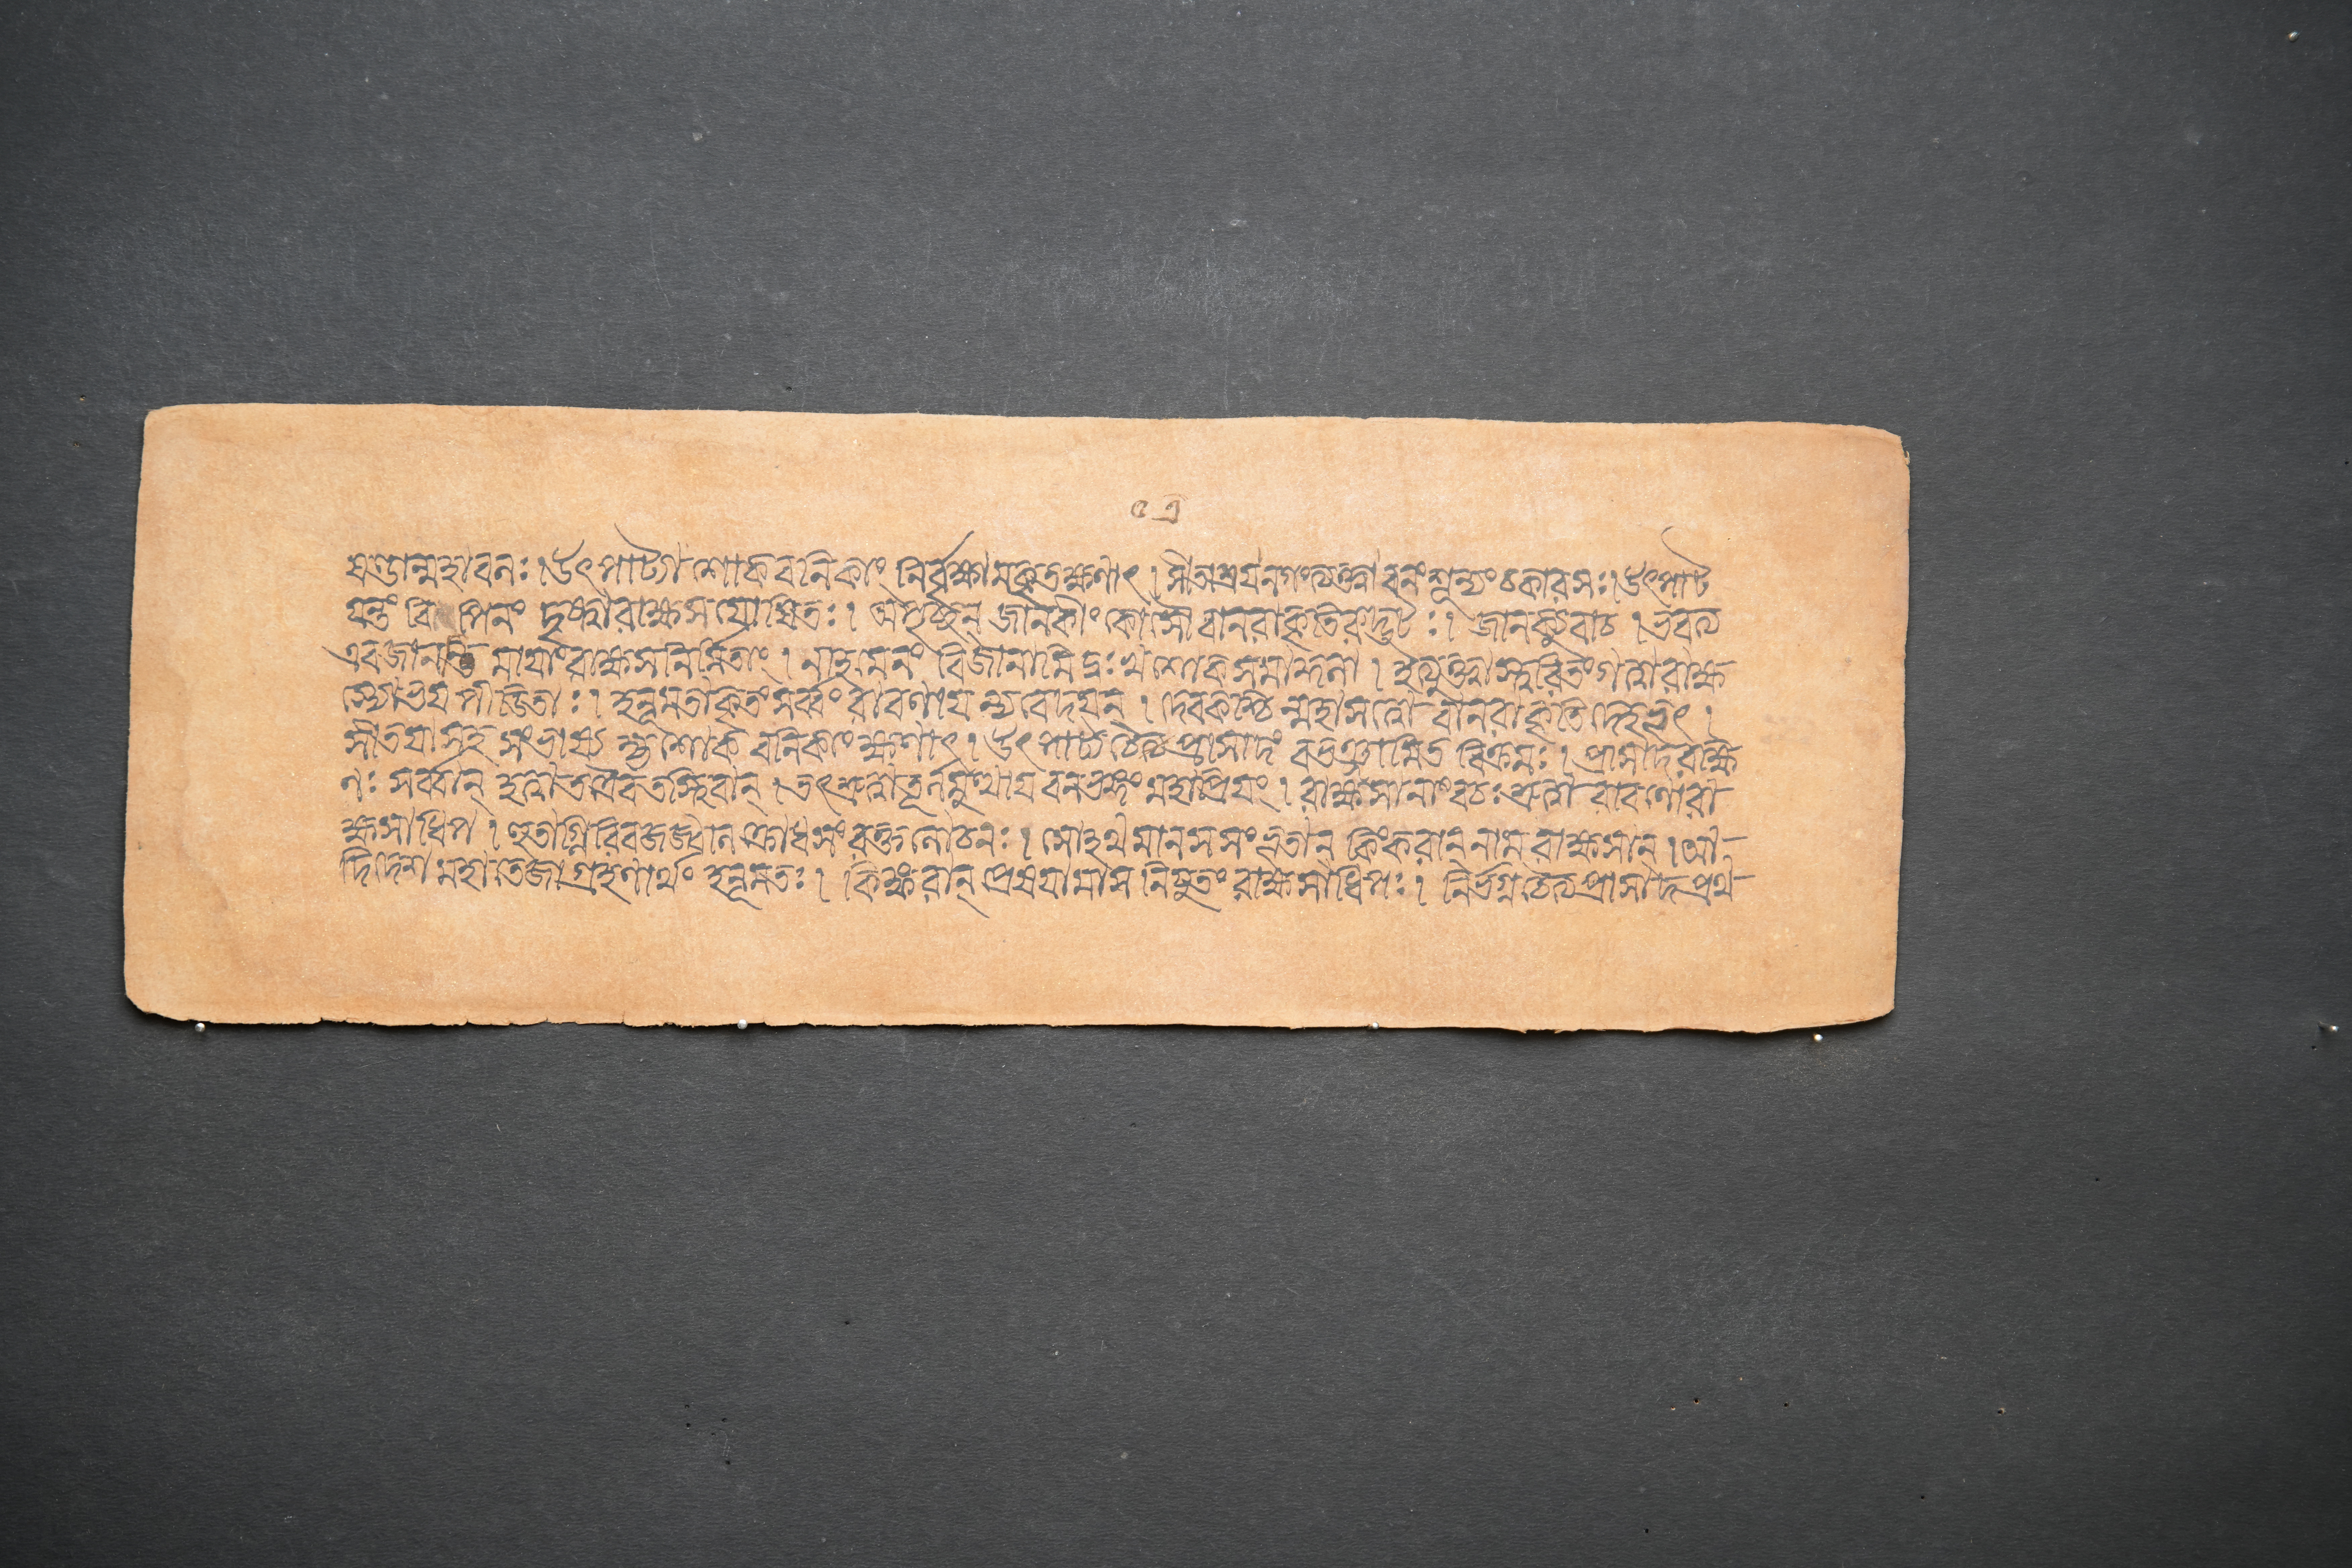 ৫এ
ঘণ্ডান্মহাবনঃ। উৎপাট্যাশোকবনিকাং নির্বৃক্ষামকরোত্ক্ষণাৎ। সীতাশ্রয়নগংত্যক্ত্বা বনং শূন্যং চকার সঃ। উৎপাট
য়ন্তং বিপিনং দৃষ্ট্বা রাক্ষসয়োষিতঃ। অপৃচ্ছন্ জানকীং কোসৌ বানরাকৃতিরুদ্ভটঃ। জানক্যুবাচ। ভবত্য
এবজানন্তি মায়াং রাক্ষসনির্ম্মিতাং। নাহমেনং বিজানামি দুঃখশোকসমাকুলা। ইত্যুক্তাস্ত্বরিতং গত্বা রাক্ষ
স্যো ভয়পীডিতাঃ। হনূমতা কৃতং সর্ব্বং রাবণায় ন্যবেদয়ন্। দেবকশ্চিন্মহাসত্ত্বো বানরাকৃতিদেহভৃৎ।
সীতয়াসহ সংভাষ্য হ্যশোকবনিকাং ক্ষণাৎ। উৎপাট্য চৈত্যপ্রাসাদং বভঞ্জামিতবিক্রমঃ। প্রাসাদরক্ষি
ণঃ সর্ব্বান্ হত্বা তত্রৈব তস্থিবান্। তৎশ্রুত্বা তূর্ণমুত্থায় বনভঙ্গং মহাপ্রিয়ং। রাক্ষসীনাং বচঃ শ্রুত্বা রাবণো রা
ক্ষসাধিপ। হুতাগ্নিরিবজজ্বাল ক্রোধসংরক্তলোচনঃ। সোহথ মানসসংভূতান্ কিংকরান্ নাম রাক্ষসান্। আ-
দিদেশ মহাতেজা গ্রহণার্থং হনূমতঃ। কিঙ্করান্ প্রেষয়ামাস নিয়ুতং রাক্ষসাধিপঃ। নির্ভগ্ন চৈত্যপ্রাসাদপ্রথ-